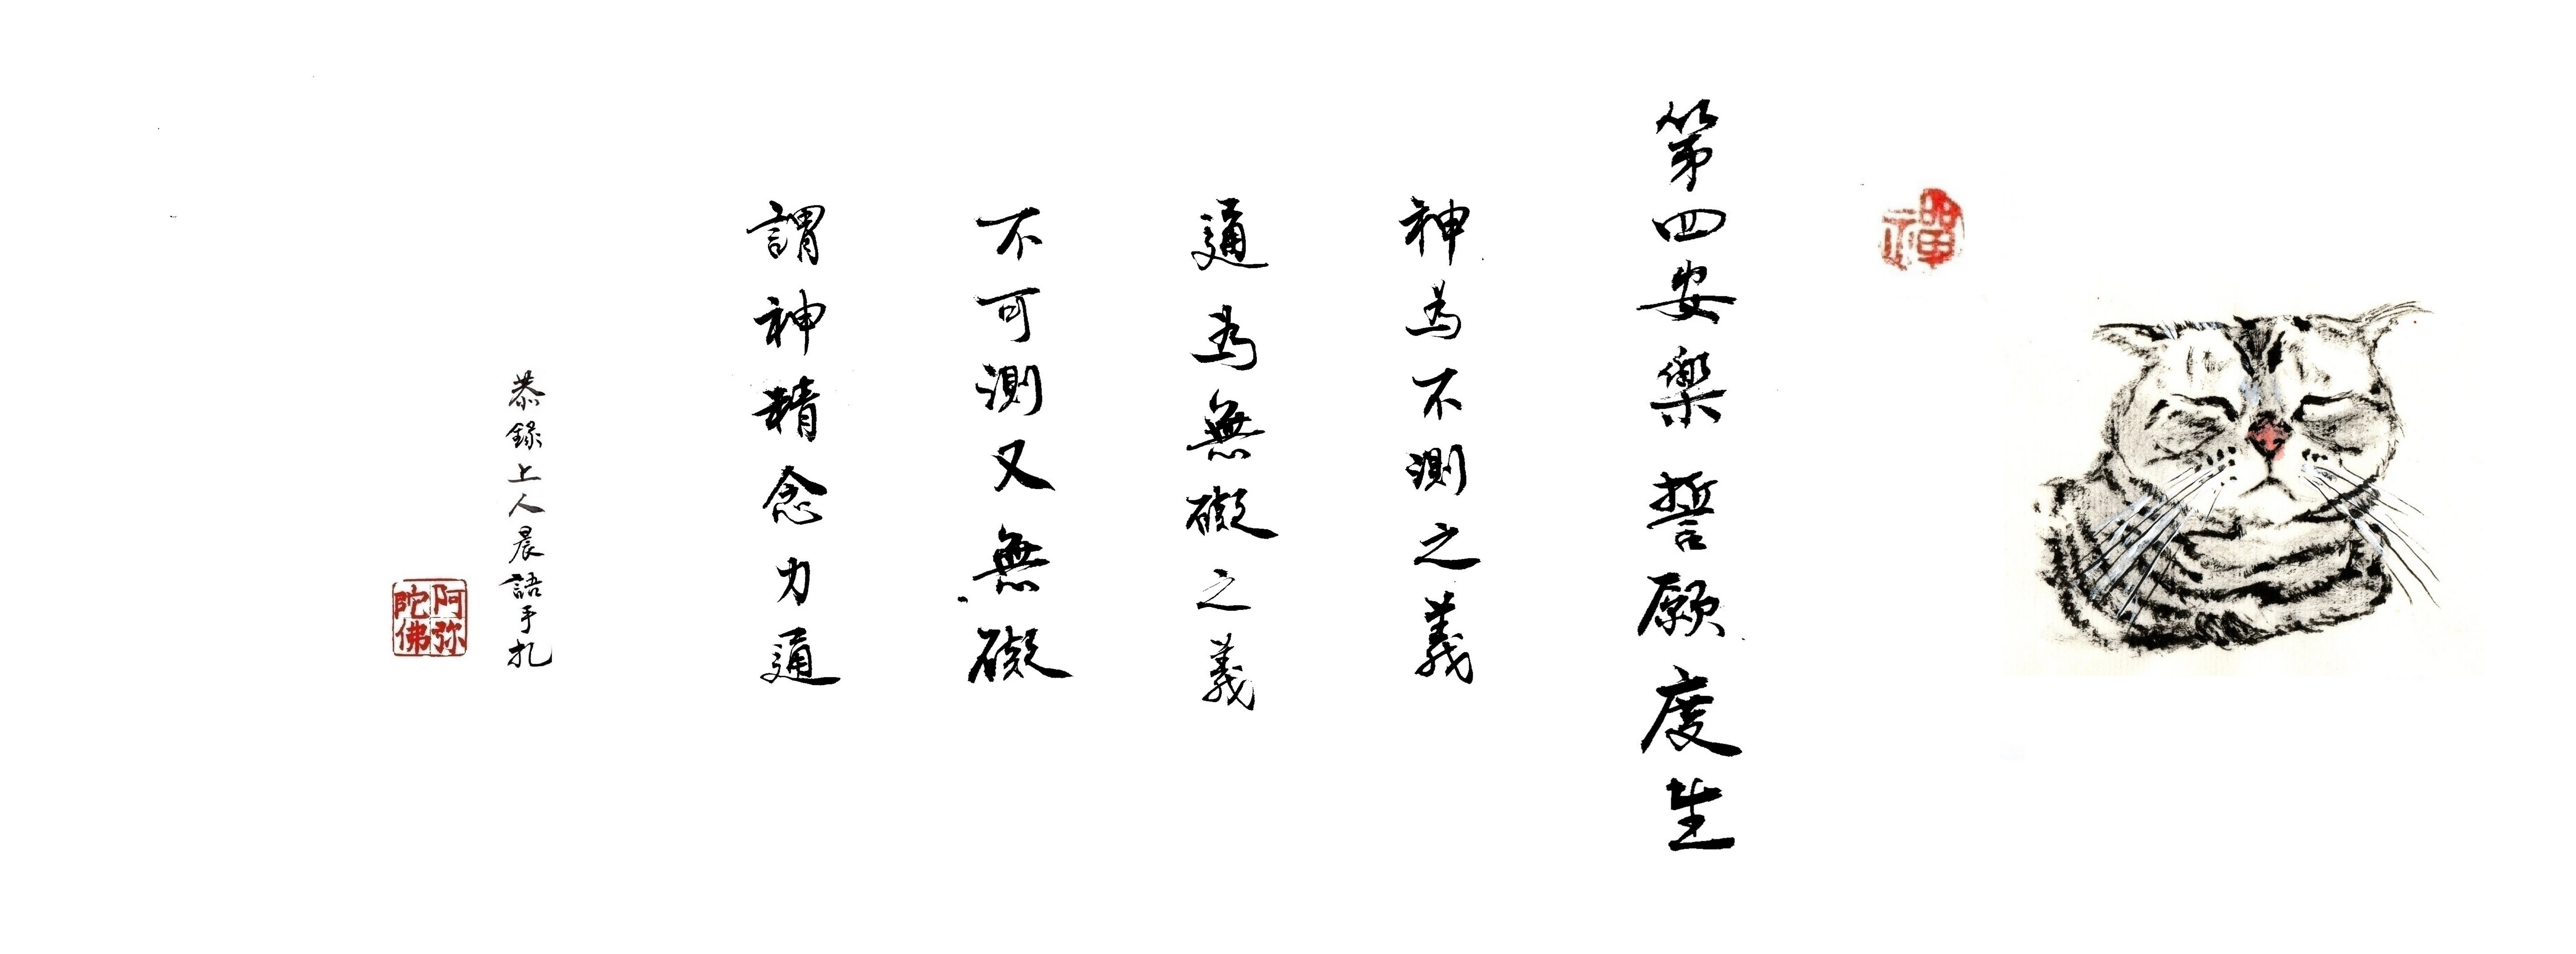 禪
第四安樂誓願度生
神為不測之義
通為無礙之義
不可測又無礙
謂神精念力通
恭錄上人晨語手扎
阿弥
陀佛